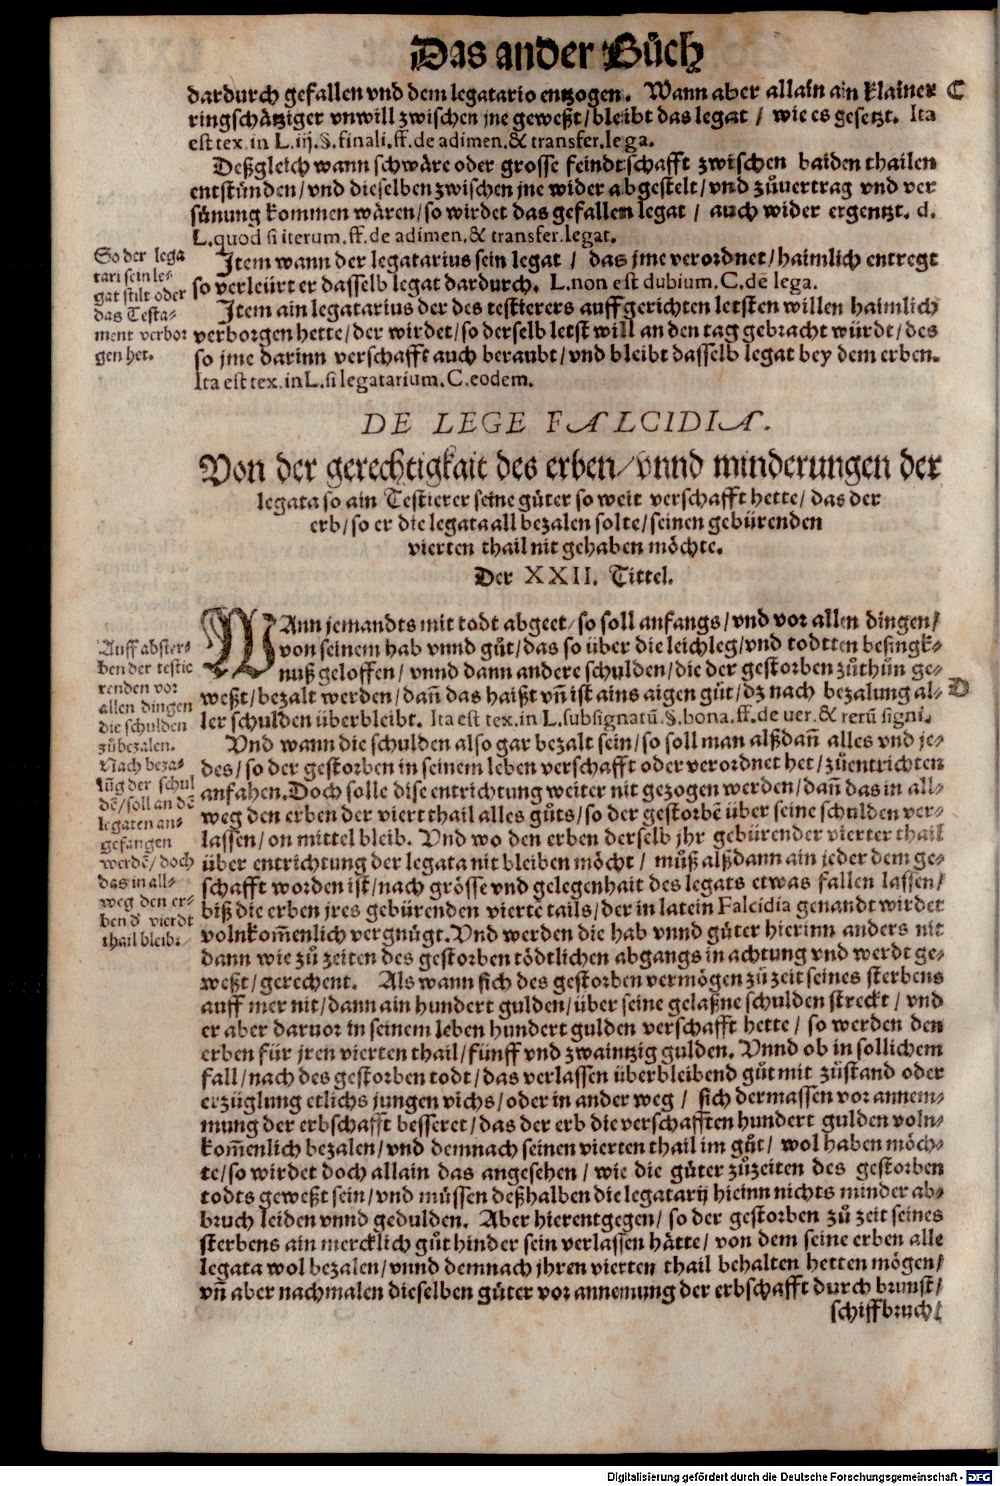 Das ander Bůch
dardurch gefallen vnd dem legatario entzogen. Wann aber allain ain klainer C
ringschätziger vnwill zwischen jne geweßt/bleibt das legat / wie es gesetzt. Ita
est tex. in L. iij. §. finali. ff. de adimen. & transfer. lega.
Deßgleich wann schwäre oder grosse feindtschafft zwischen baiden thailen
entstünden/vnd dieselben zwischen jne wider abgestelt/vnd zůuertrag vnd ver
sünung kommen wären/so wirdet das gefallen legat / auch wider ergentzt. d.
L. quod si iterum. ff. de adimen. & transfer. legat.
So der lega
tari sein le-
gat stilt oder
das Testa-
ment verbor
gen het.
Item wann der legatarius sein legat / das jme verordnet/haimlich entregt
so verleürt er dasselb legat dardurch. L. non est dubium. C. de lega.
Item ain legatarius der des testierers auffgerichten letsten willen haimlich
verborgen hette/der wirdet/so derselb letst will an den tag gebracht würdt/des
so jme darinn verschafft auch beraubt/vnd bleibt dasselb legat bey dem erben.
Ita est tex. in L. si legatarium. C. eodem.
DE LEGE FALCIDIA.
Von der gerechtigkait des erben/vnnd minderungen der
legata so ain Testierer seine güter so weit verschafft hette/das der
erb/so er die legata all bezalen solte/seinen gebürenden
vierten thail nit gehaben möchte.
Der XXII. Tittel.
Auff abster-
ben der testie
renden vor
allen dingen
die schulden
zůbezalen.
Nach beza-
lūg der schul
dē/soll an dē
legaten an-
gefangen
werdē/doch
das in all-
weg den er-
ben d vierdt
thail bleib.
WAnn jemandts mit todt abgeet/so soll anfangs/vnd vor allen dingen/
von seinem hab vnnd gůt/das so über die leichleg/vnd todtten besingk-
nuß geloffen/vnnd dann andere schulden/die der gestorben zůthůn ge-
weßt/bezalt werden/dañ das haißt vñ ist ains aigen gůt/dz nach bezalung al- D
ler schulden überbleibt. Ita est tex. in L. subsignatū. §. bona. ff. de uer. & rerū signi.
Vnd wann die schulden also gar bezalt sein/so soll man alßdañ alles vnd je-
des/so der gestorben in seinem leben verschafft oder verordnet het/zůentrichten
anfahen. Doch solle dise entrichtung weiter nit gezogen werden/dañ das in all-
weg den erben der viert thail alles gůts/so der gestorbē über seine schulden ver-
lassen/on mittel bleib. Vnd wo den erben derselb jhr gebürender vierter thail
über entrichtung der legata nit bleiben möcht / můß alßdann ain jeder dem ge-
schafft worden ist/nach grösse vnd gelegenhait des legats etwas fallen lassen/
biß die erben jres gebürenden viertē tails/der in latein Falcidia genandt wirdet
volnkoм̃enlich vergnügt. Vnd werden die hab vnnd güter hierinn anders nit
dann wie zů zeiten des gestorben tödtlichen abgangs in achtung vnd werdt ge-
weßt/gerechent. Als wann sich des gestorben vermögen zů zeit seines sterbens
auff mer nit/dann ain hundert gulden/über seine gelaßne schulden streckt / vnd
er aber daruor in seinem leben hundert gulden verschafft hette / so werden den
erben für jren vierten thail/fünff vnd zwaintzig gulden. Vnnd ob in sollichem
fall/nach des gestorben todt/das verlassen überbleibend gůt mit zůstand oder
erzüglung etlichs jungen vichs/oder in ander weg / sich dermassen vor annem-
mung der erbschafft besseret/das der erb die verschafften hundert gulden voln-
kom̃enlich bezalen/vnd demnach seinen vierten thail im gůt/ wol haben möch-
te/so wirdet doch allain das angesehen / wie die güter zůzeiten des gestorben
todts geweßt sein/vnd müssen deßhalben die legatarij hieinn nichts minder ab-
bruch leiden vnnd gedulden. Aber hierentgegen/ so der gestorben zů zeit seines
sterbens ain mercklich gůt hinder sein verlassen hätte/ von dem seine erben alle
legata wol bezalen/vnnd demnach jhren vierten thail behalten hetten mögen/
vñ aber nachmalen dieselben güter vor annemung der erbschafft durch brunst/
schiffbruch/
Digitalisierung gefördert durch die Deutsche Forschungsgemeinschaft - DFG